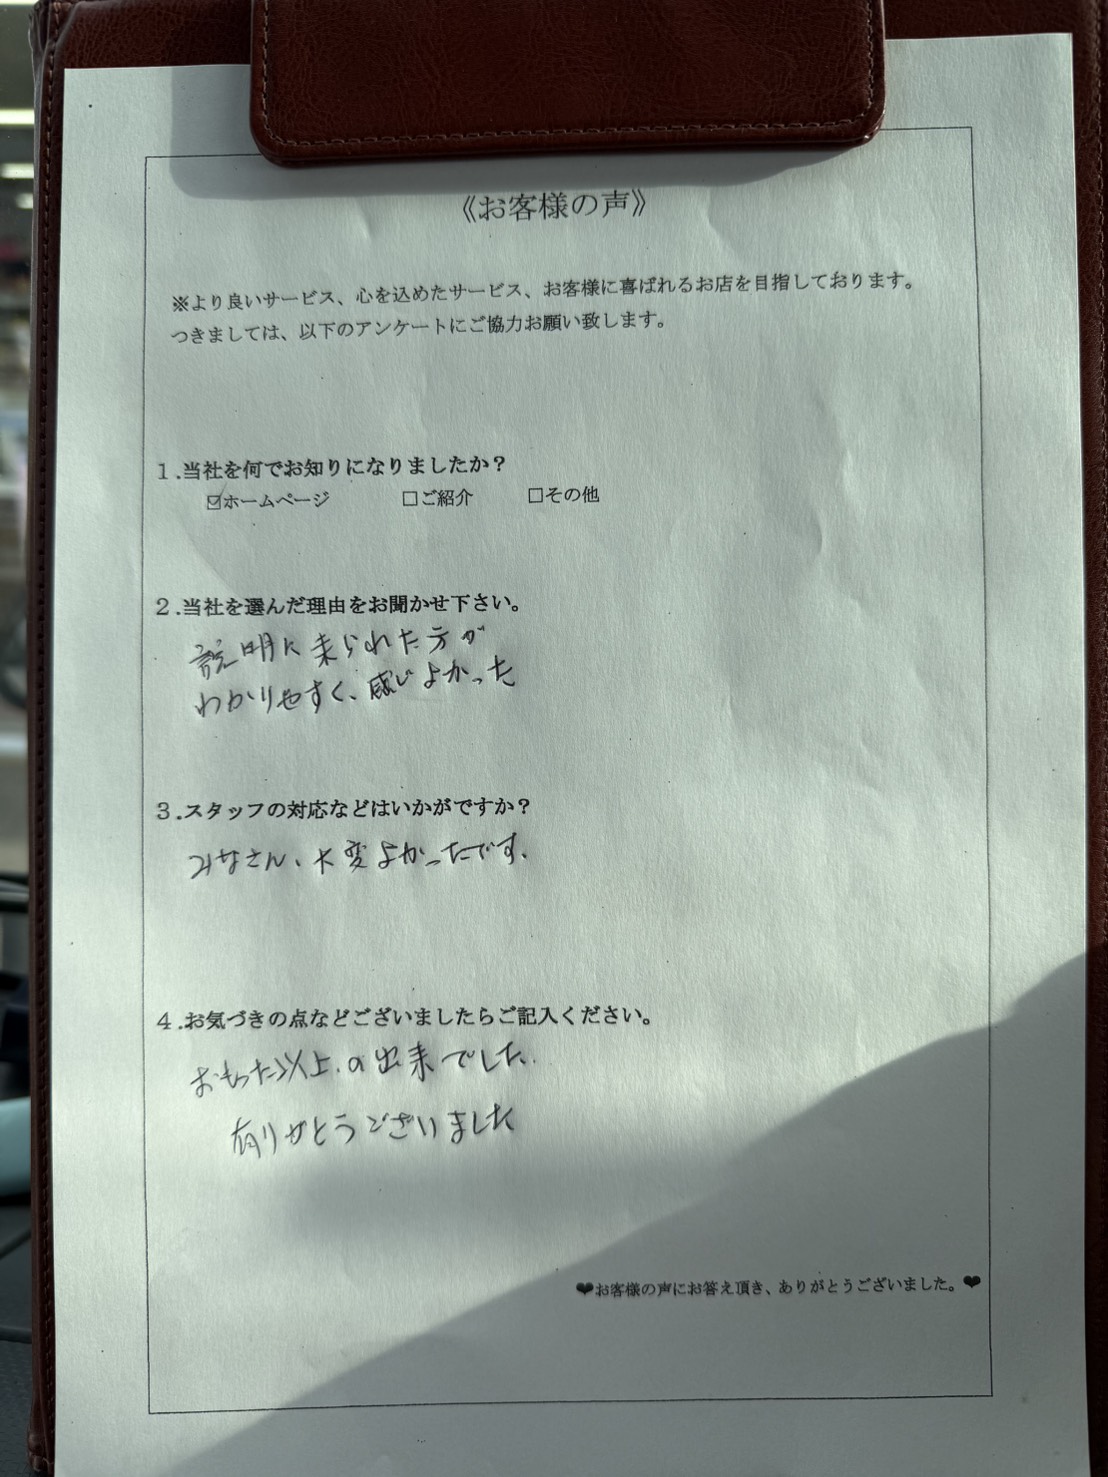 《お客様の声》
※より良いサービス、心を込めたサービス、お客様に喜ばれるお店を目指しております。
つきましては、以下のアンケートにご協力お願い致します。
1.当社を何でお知りになりましたか？
☑ホームページ □ご紹介 □その他
2.当社を選んだ理由をお聞かせ下さい。
説明に来られた方が
わかりやすく、感じよかった
3.スタッフの対応などはいかがですか？
みなさん、大変よかったです、
4.お気づきの点などございましたらご記入ください。
おもった以上の出来でした.
有りがとうございました
❤お客様の声にお答え頂き、ありがとうございました。❤